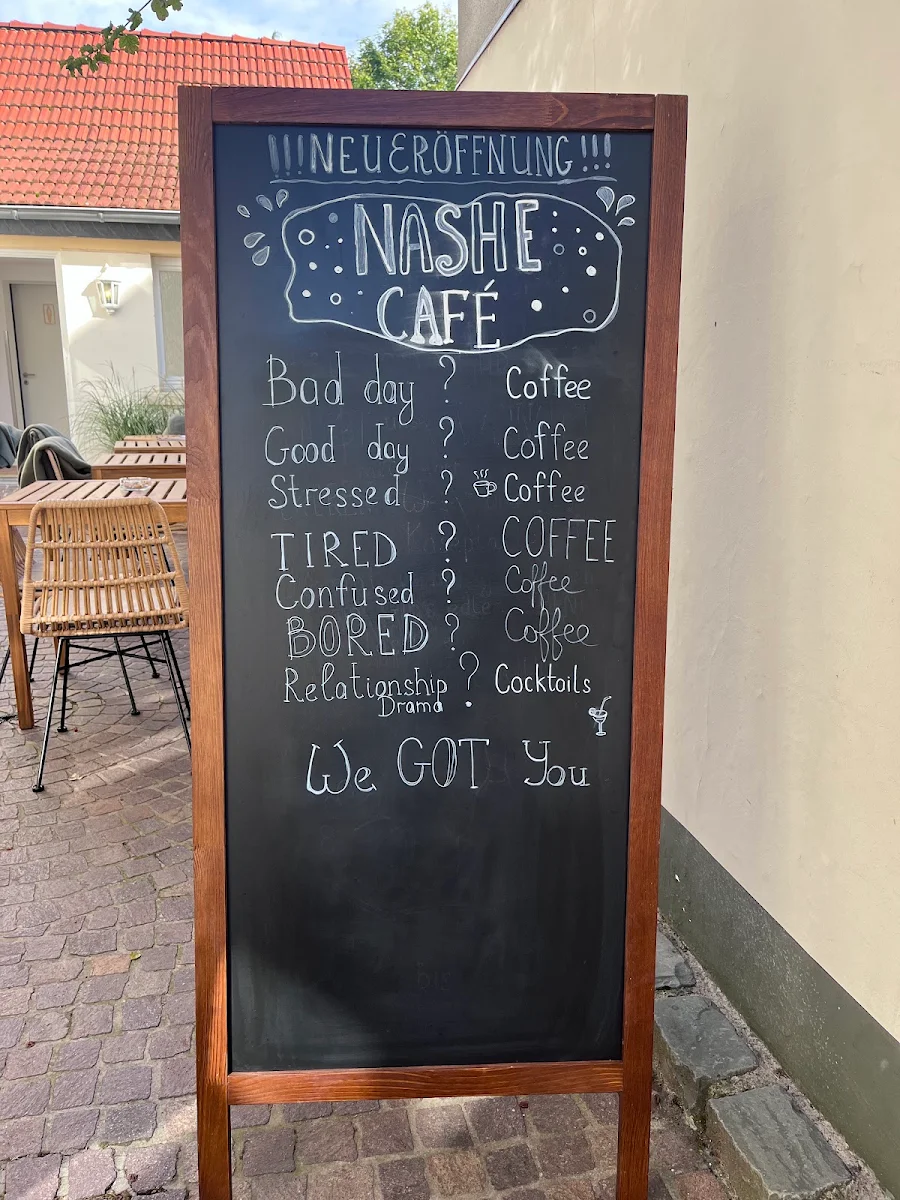 !!!NEUERÖFFNUNG!!!
NASHE
CAFÉ
Bad day ? Coffee
Good day ? Coffee
Stressed ? Coffee
TIRED ? COFFEE
Confused ? Coffee
BORED ? Coffee
Relationship Drama ? Cocktails
We GOT You